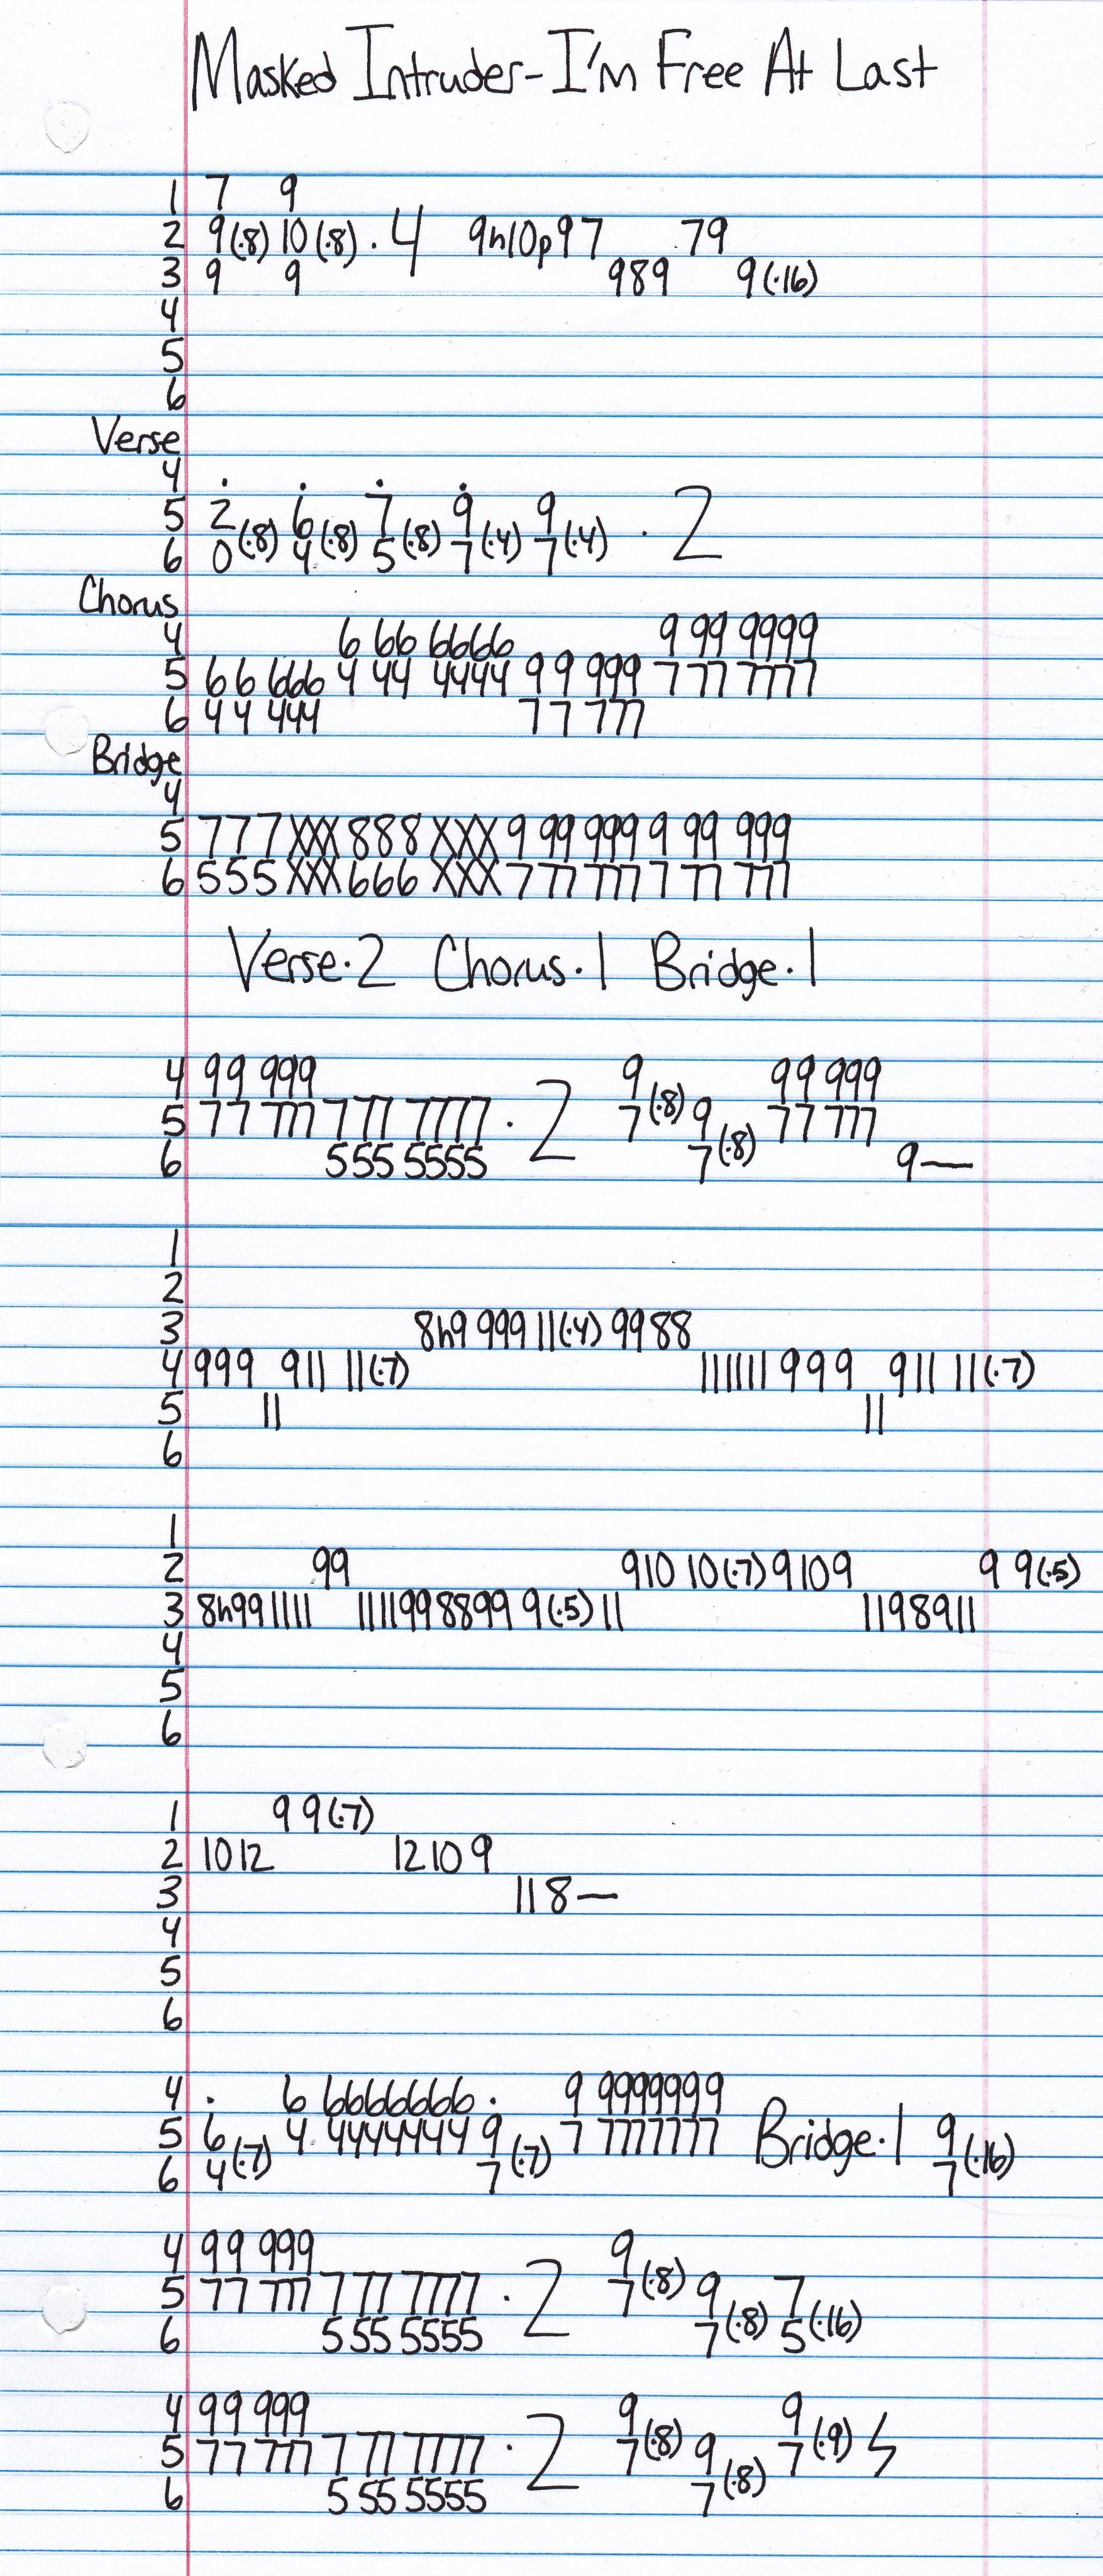 Masked Intruder-I'm Free At Last
1 7 9
2 9(·8) 10(·8) · 4 9h10p97 79
3 9 9 989 9(·16)
4
5
6
Verse
4 · · · ·
5 2 6 7 9 9
(·8) (·8) (·8) (·4) (·4) · 2
6 0 4 5 7 7
Chorus
4 6 66 6666 9 99 9999
5 66 666 4 44 4444 99 999 7 77 7777
6 44 444 77 777
Bridge
4
5 777XXX888XXX9 99 999 9 99 999
6 555XXX666XXX7 77 777 7 77 777
Verse·2 Chorus·1 Bridge·1
4 99 999 9 99 999
5 77 777 777 7777 · 2 7(·8) 9 77 777
6 555 5555 7(·8) 9—
1
2
3 8h9 999 11(·4) 9988
4 999 911 11(·7) 111111 999 911 11(·7)
5 11 11
6
1
2 99 910 10(·7) 9109 9 9(·5)
3 8h991111 1111998899 9(·5) 11 1198911
4
5
6
1 9 9(·7)
2 1012 12109
3 118—
4
5
6
4 · 6 6666666 · 9 9999999
5 6 4 4444444 9 7 7777777 Bridge·1 9
6 4(·7) 7(·7) 7(·16)
4 99 999 9
5 77 777 777 7777 · 2 7(·8) 9 7
6 555 5555 7(·8) 5(·16)
4 99 999 9 9
5 77 777 777 7777 · 2 7(·8) 9 7(·9)
6 555 5555 7(·8)